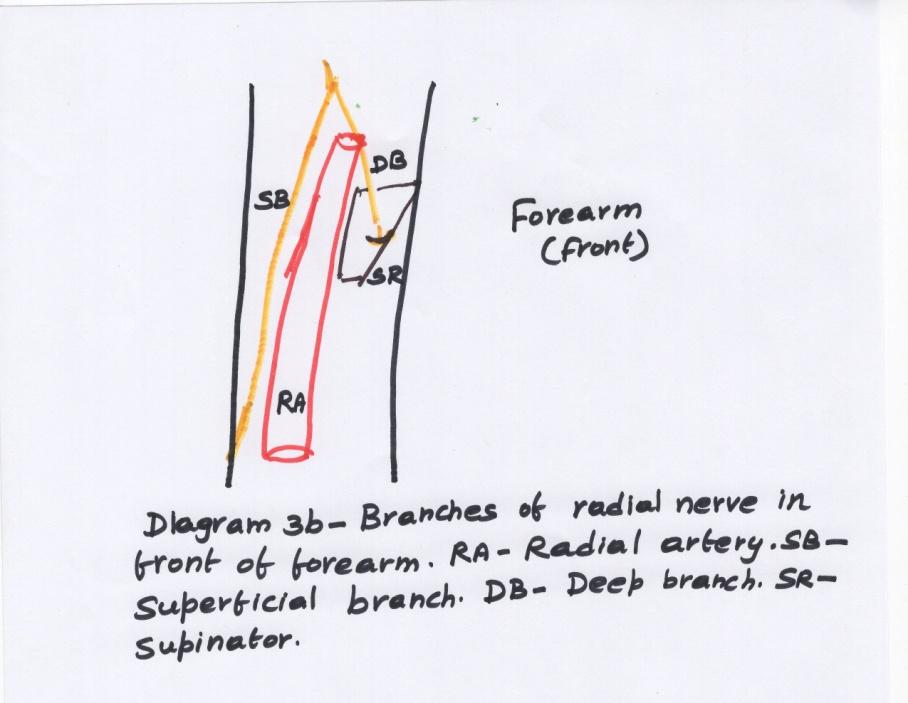 DB
SB
Forearm
(front)
SR
RA
Diagram 3b- Branches of radial nerve in
front of forearm. RA- Radial artery. SB-
Superficial branch. DB- Deep branch. SR-
Supinator.